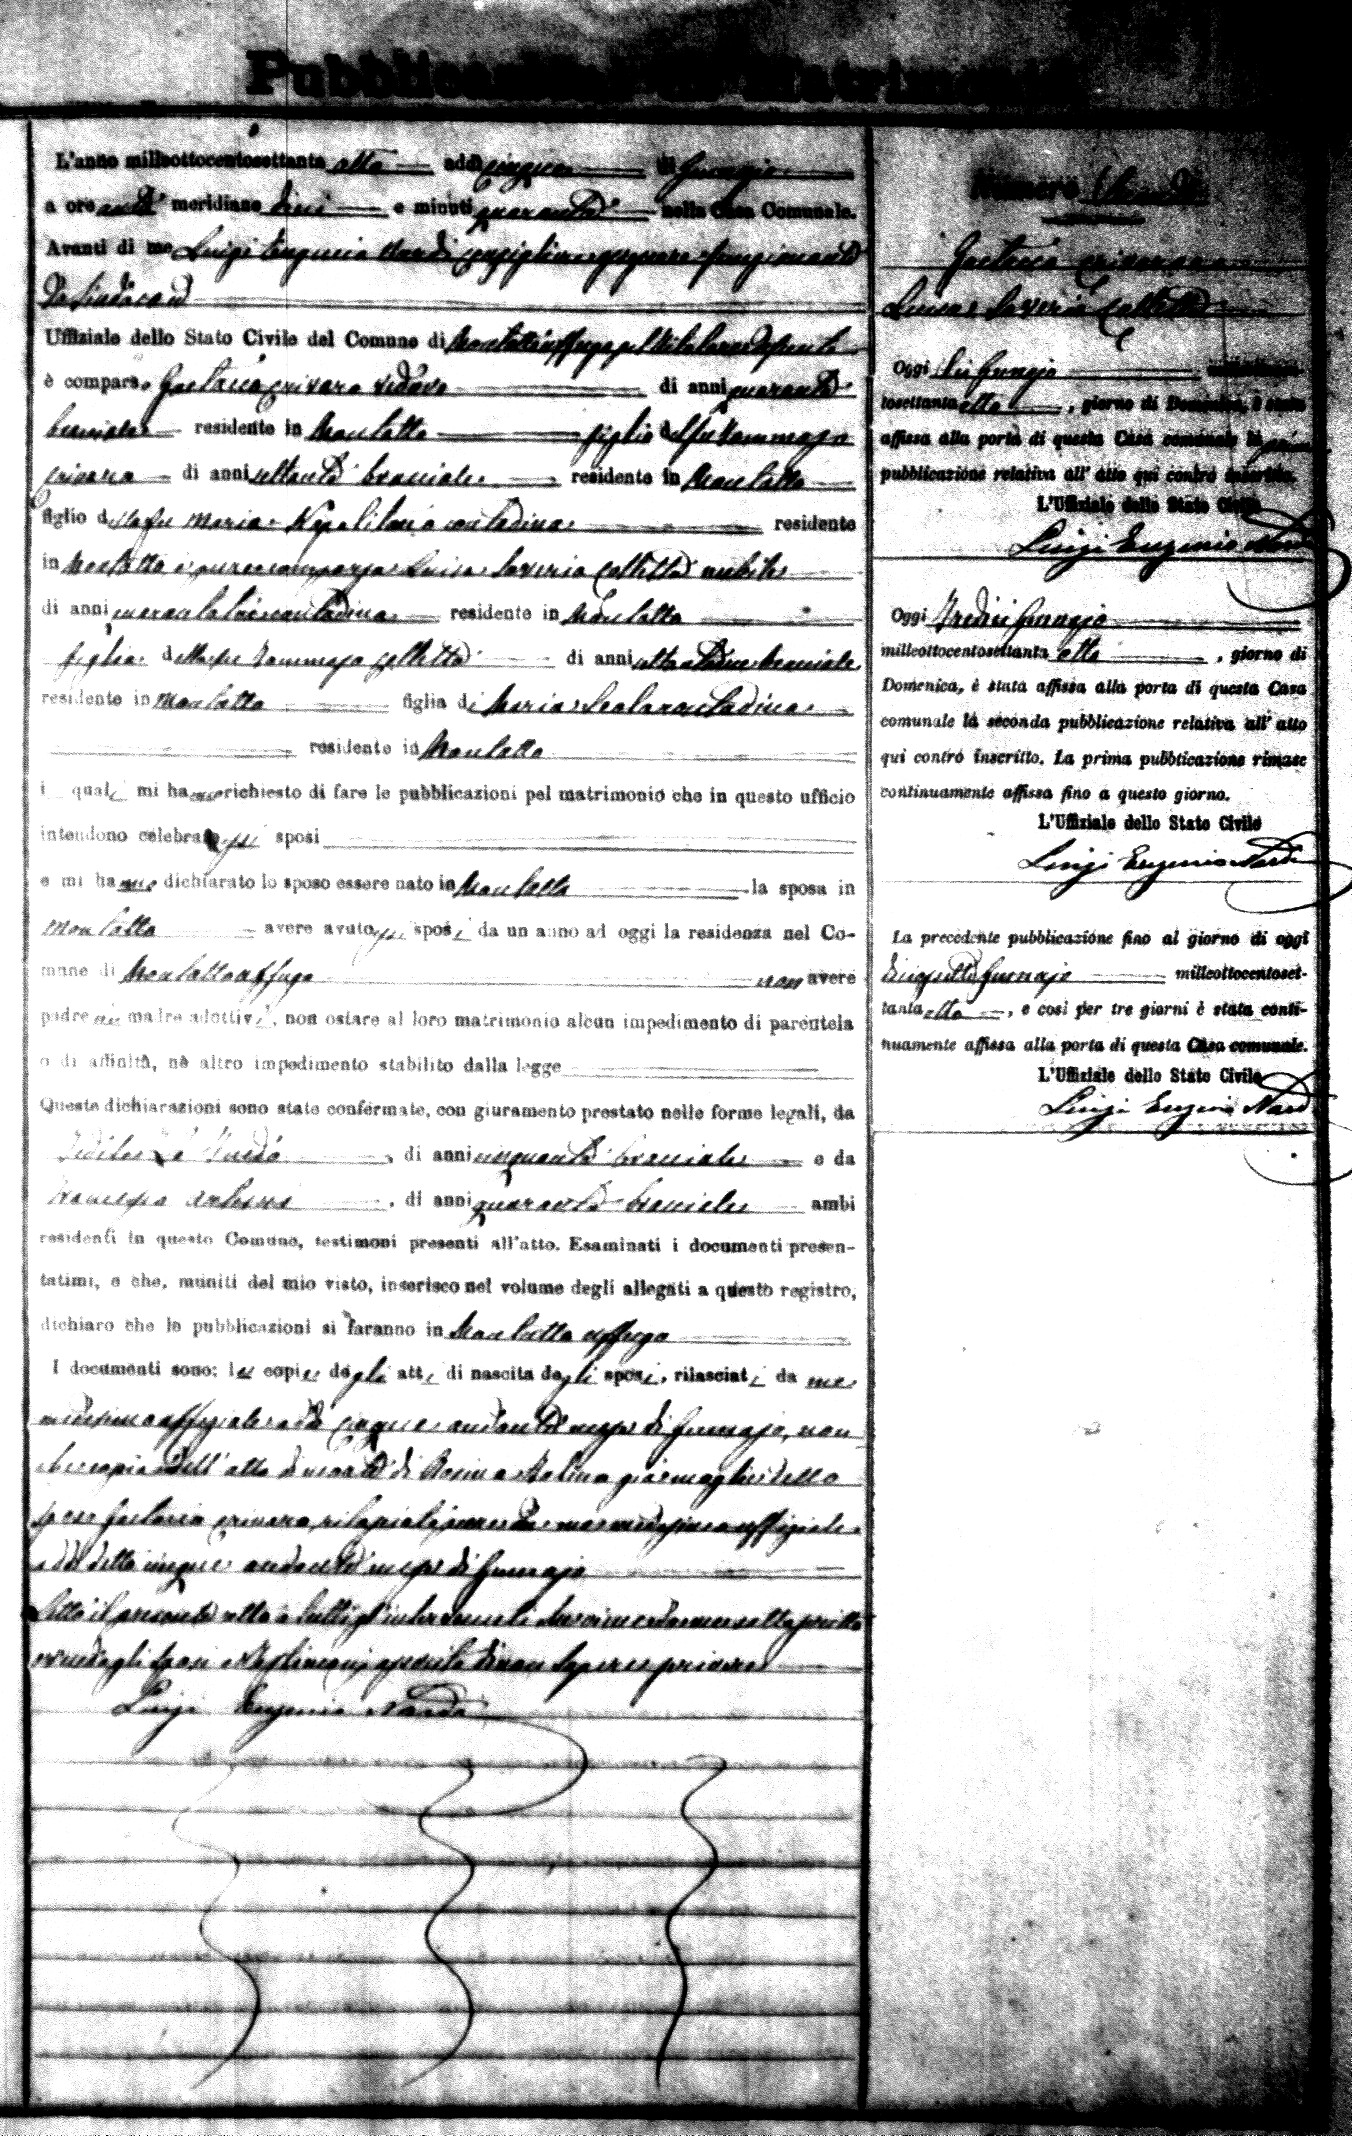 Pubblicazioni di Matrimonio
L'anno milleottocentosettanta otto addì cinque di Gennajo
a ore anti meridiane dieci e minuti quaranta nella Casa Comunale.
Avanti di me Luigi Eugenio Nardi Consigliere funzionante
da Sindaco
Uffiziale dello Stato Civile del Comune di Montalto Uffugo
è comparso Gaetano Crivaro vedovo di anni quaranta
bracciale residente in Montalto figlio del fu Tommaso
Crivaro di anni settanta bracciale residente in Montalto
figlio della fu Maria Napolitano contadina residente
in Montalto è pure comparsa Luisa Saveria Colletta nubile
di anni contadina residente in Montalto
figlia del fu Tommaso Colletta di anni bracciale
residente in Montalto figlia di Maria Scala contadina
residente in Montalto
i quali mi hanno richiesto di fare le pubblicazioni pel matrimonio che in questo ufficio
intendono celebrare essi sposi
e mi hanno dichiarato lo sposo essere nato in Montalto la sposa in
Montalto avere avuto essi sposi da un anno ad oggi la residenza nel Co-
mune di Montalto Uffugo non avere
padre ne madre adottivi, non ostare al loro matrimonio alcun impedimento di parentela
o di affinità, nè altro impedimento stabilito dalla legge
Queste dichiarazioni sono state confermate, con giuramento prestato nelle forme legali, da
, di anni cinquanta bracciale e da
Francesco , di anni quaranta bracciale ambi
residenti in questo Comune, testimoni presenti all'atto. Esaminati i documenti presen-
tatimi, e che, muniti del mio visto, inserisco nel volume degli allegati a questo registro,
dichiaro che le pubblicazioni si faranno in Montalto Uffugo
I documenti sono: le copie degli atti di nascita degli sposi, rilasciati da me
medesimo uffiziale addì cinque andante mese di Gennajo, non
che copia dell'atto di morte di Rosina già moglie dello
sposo Gaetano Crivaro, rilasciata pure da me medesimo uffiziale
addì detto cinque andante mese di Gennajo
Letto il presente atto a tutti gl'intervenuti da me sottoscritto
non dagli sposi e testimoni di non sapere scrivere
Luigi Eugenio Nardi
Numero
Gaetano Crivaro
Luisa Saveria Colletta
Oggi sei Gennajo milleottocen-
tosettanta otto, giorno di Domenica, è stata
affissa alla porta di questa Casa comunale la prima
pubblicazione relativa all'atto qui contro inscritto.
L'Uffiziale dello Stato Civile
Luigi Eugenio Nardi
Oggi tredici Gennajo
milleottocentosettanta otto, giorno di
Domenica, è stata affissa alla porta di questa Casa
comunale la seconda pubblicazione relativa all'atto
qui contro inscritto. La prima pubblicazione rimase
continuamente affissa fino a questo giorno.
L'Uffiziale dello Stato Civile
Luigi Eugenio Nardi
La precedente pubblicazione fino al giorno di oggi
Gennajo milleottocentoset-
tanta otto, e così per tre giorni è stata conti-
nuamente affissa alla porta di questa Casa comunale.
L'Uffiziale dello Stato Civile
Luigi Eugenio Nardi